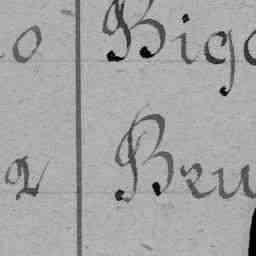 o Bigo
a Bru